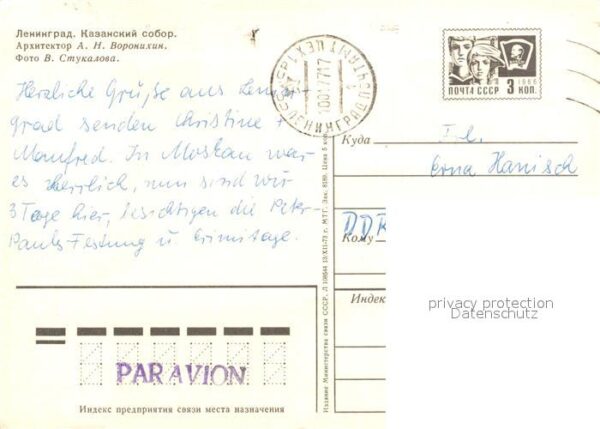 Ленинград. Казанский собор.
Архитектор А. Н. Воронихин.
Фото В. Стукалова.
Herzliche Grüße aus Lenin-
grad senden Christine +
Manfred. In Moskau war
es herrlich, nun sind wir
3 Tage hier, besichtigen die Peter-
Pauls-Festung u. Erimitage.
ЛЕНИНГРАД
ПОЧТА СССР 3 КОП.
1966
Куда
Erna Hanisch
DDR
Кому
Индекс
privacy protection
Datenschutz
PAR AVION
Индекс предприятия связи места назначения
Издание Министерства связи СССР. Л 108644 13/XII-73 г. МТГ. Зак. 8189. Цена 5 коп.